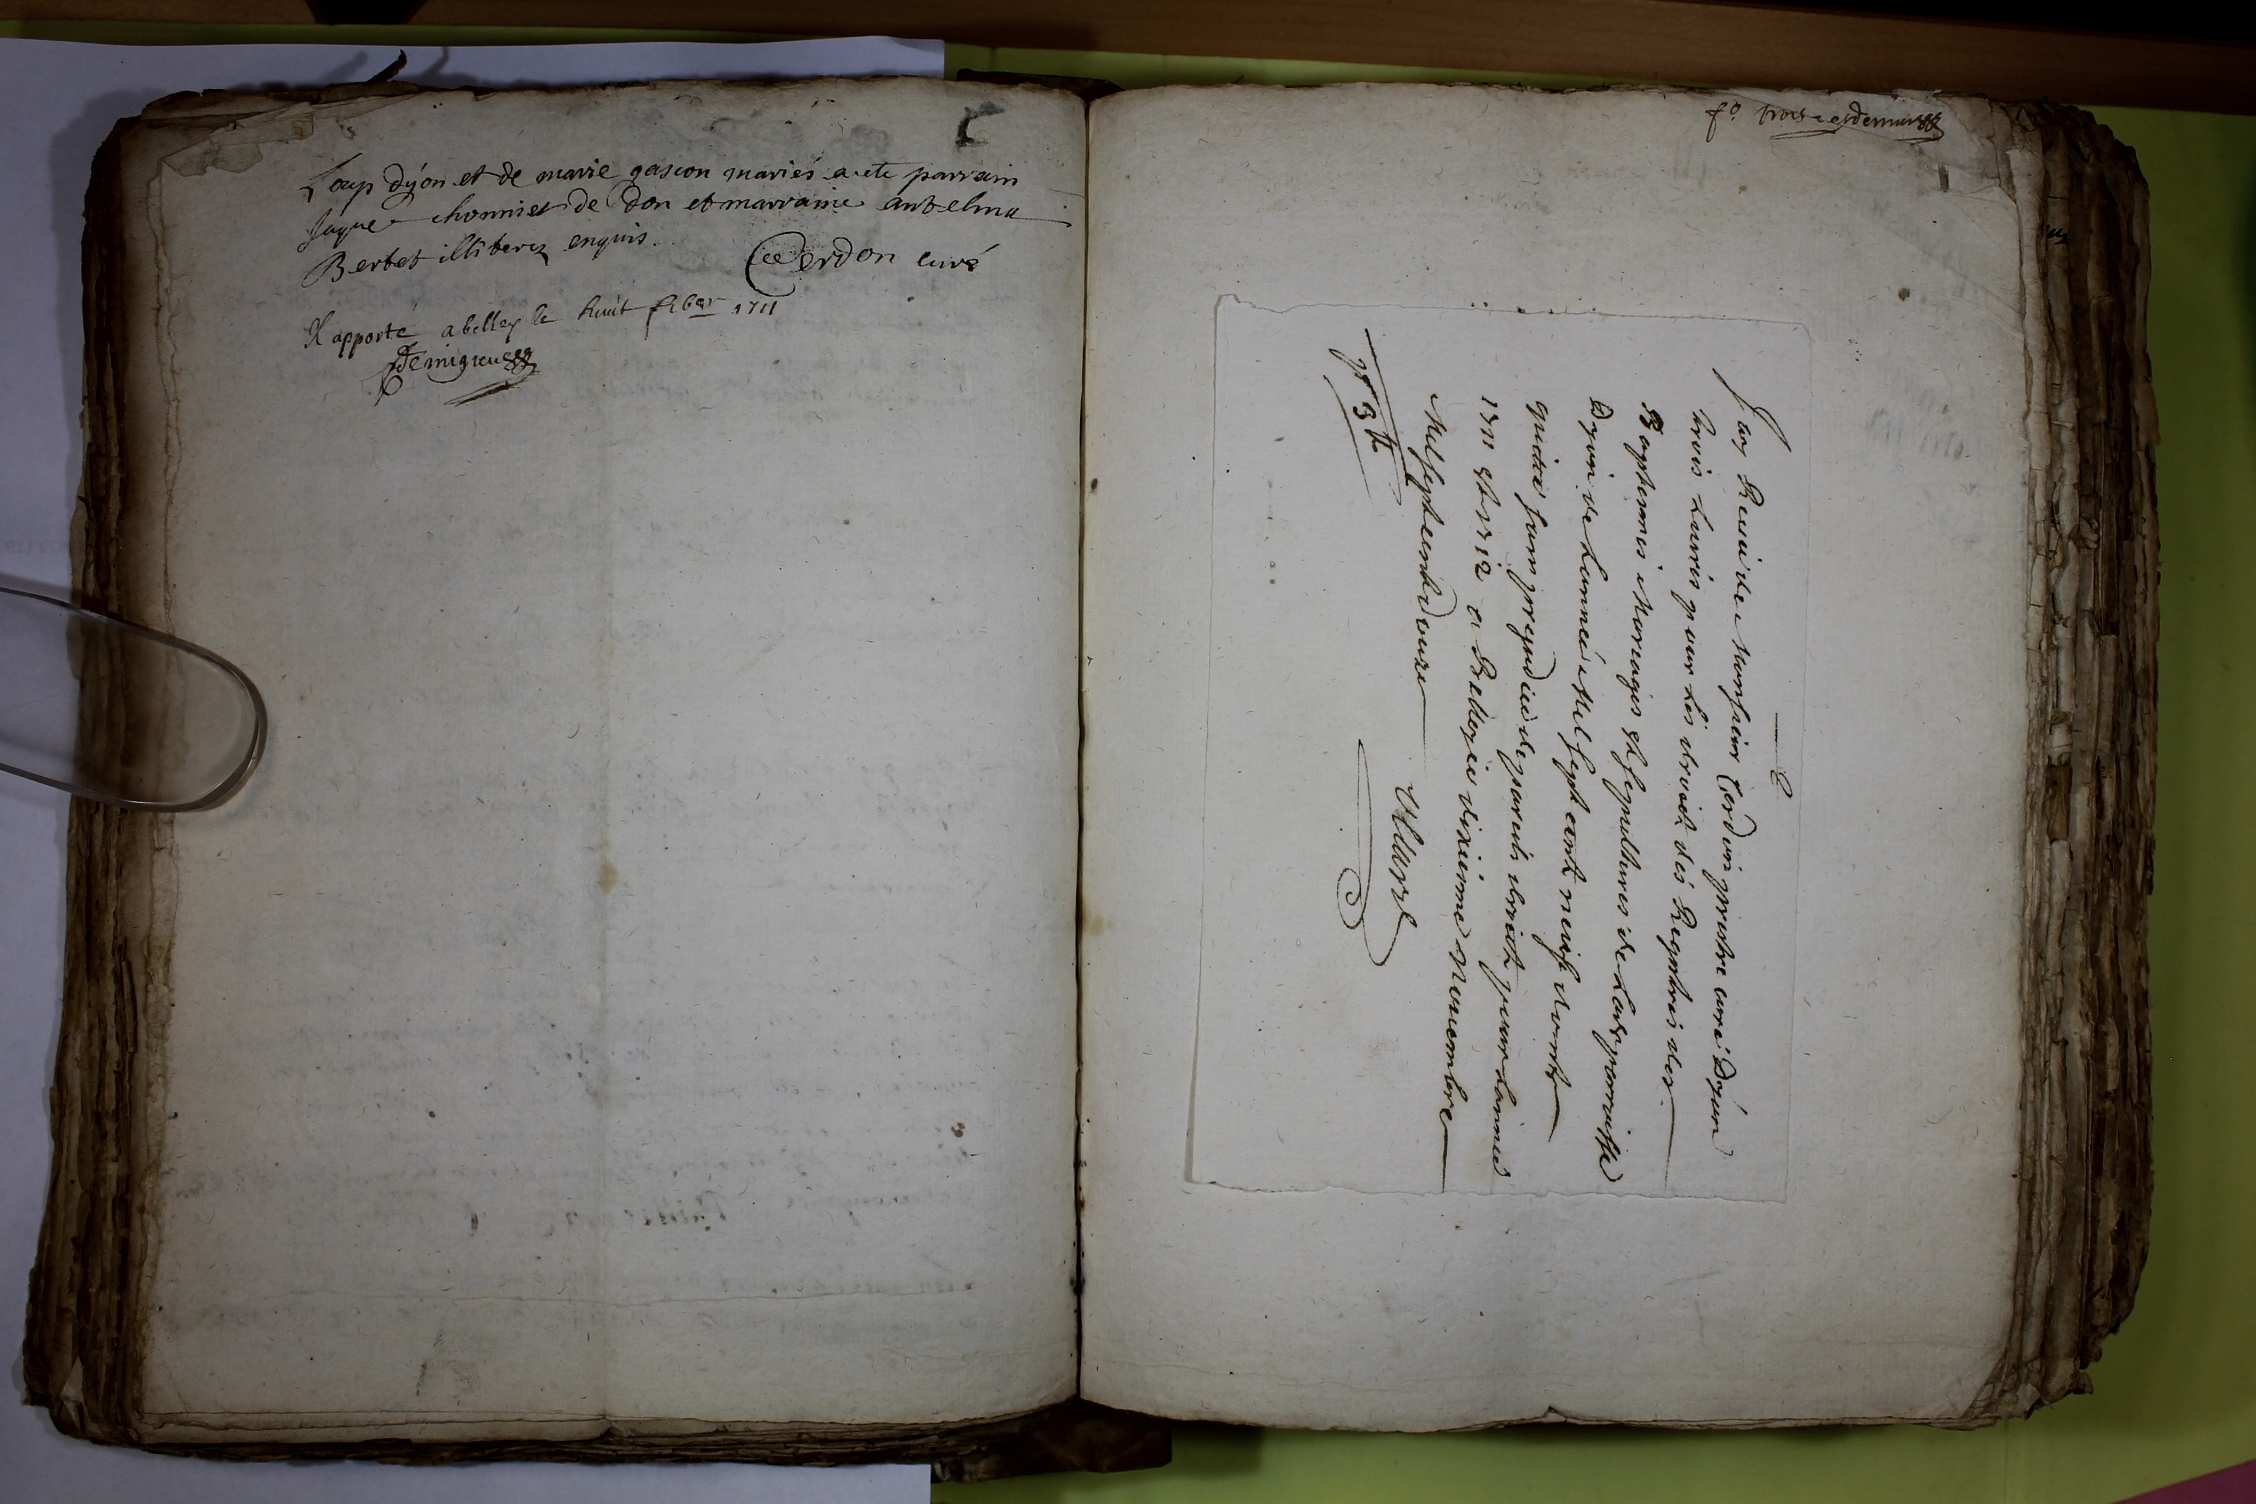 Loup dyon et de marie gascon mariés a ete parrain
Jaque chonnier de don et marraine antelma
Berbet illiterez enquis.
Cerdon curé
Rapporté a belley le huit febur 1711
Demigieu
fo. trois et dernier
Jay Receu de Monsieur Cerdon prestre curé Dyon
trois Liures pour les droicts des Registres des
Baptesmes Mariages et sepultures de Lad. parroisse
Dyon de Lannée Mil sept cents neufs dont
quitte sans prejudice de pareils droicts pour Lannée
1711 et 1712 a Belley ce dixieme nouembre
Mil sept cents douze
pt 3 ₶